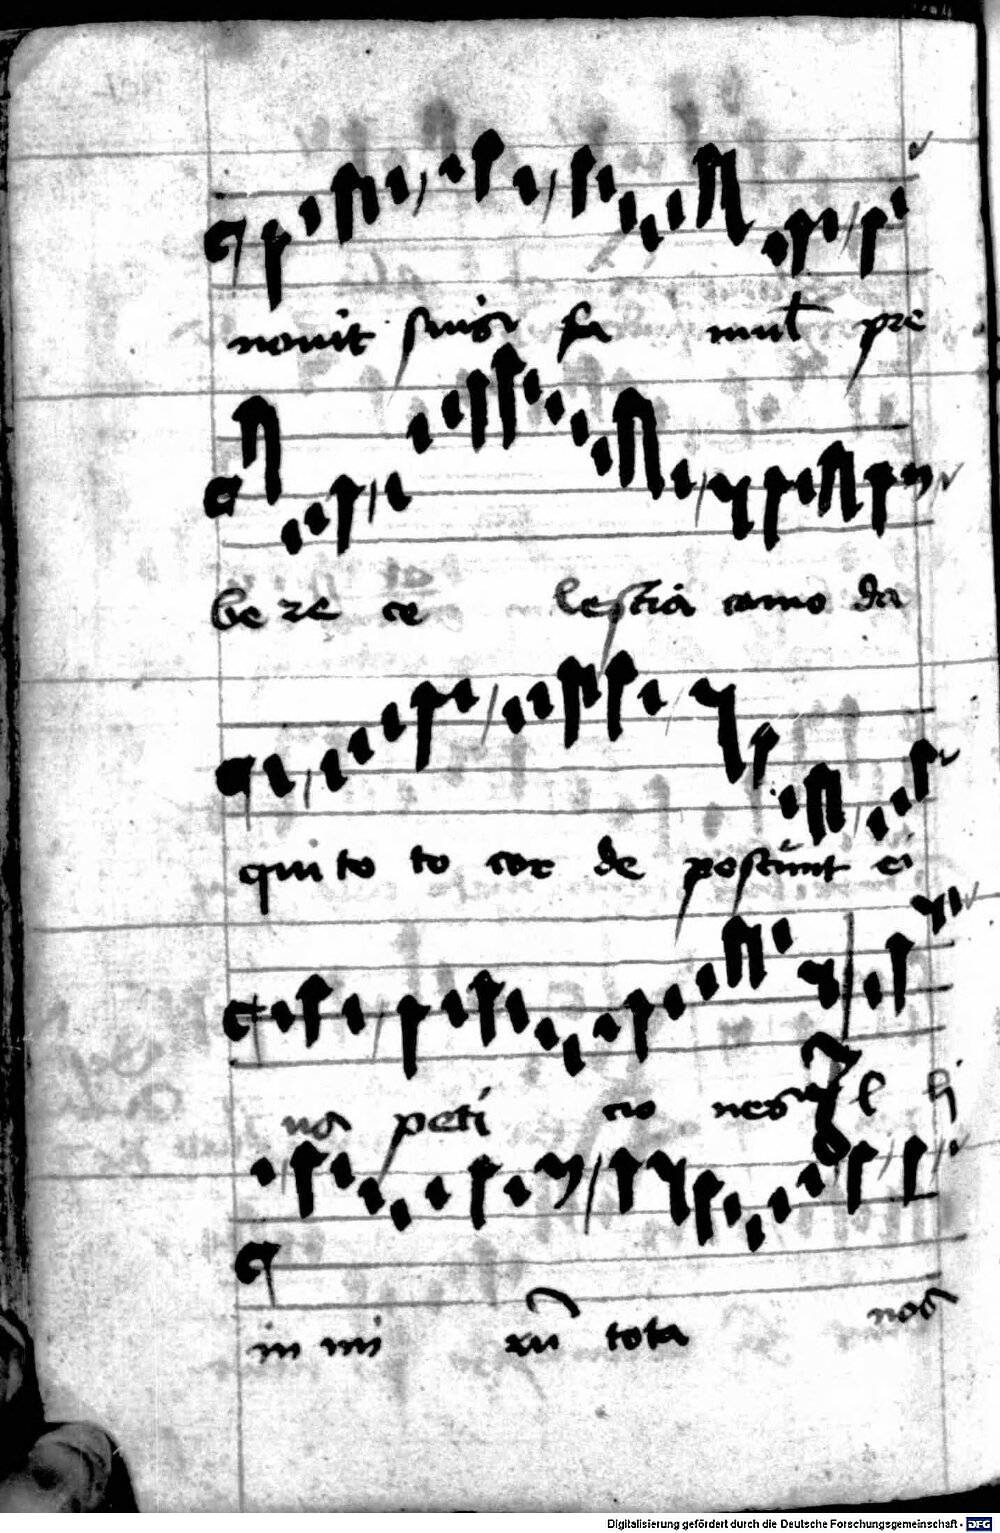 novit suis fa mul pre
be re ce lestia comoda
qui to to cor de poscunt ei
us peti cio nes
in mi tota nos
Digitalisierung gefördert durch die Deutsche Forschungsgemeinschaft - DFG